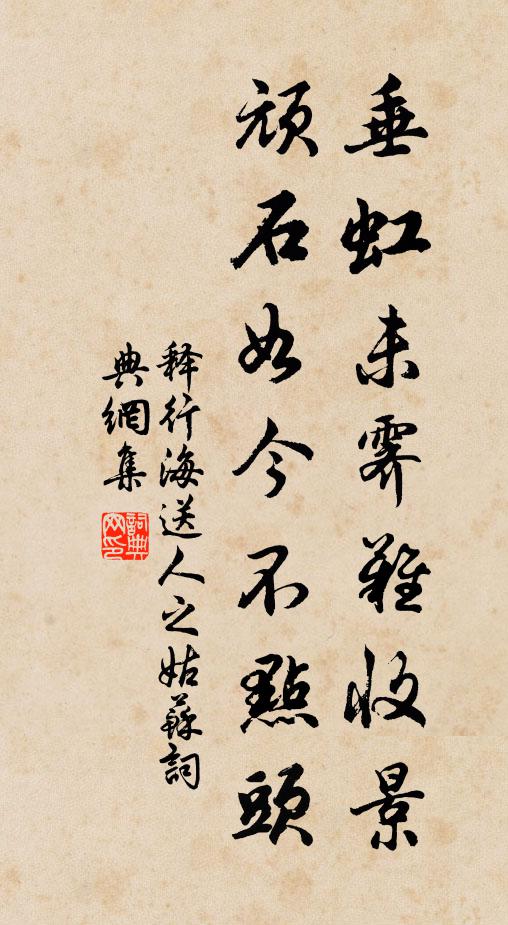 垂虹未霽難收景
頑石如今不點頭
释行海送人之姑蘇詞
典網集
詞典
网印